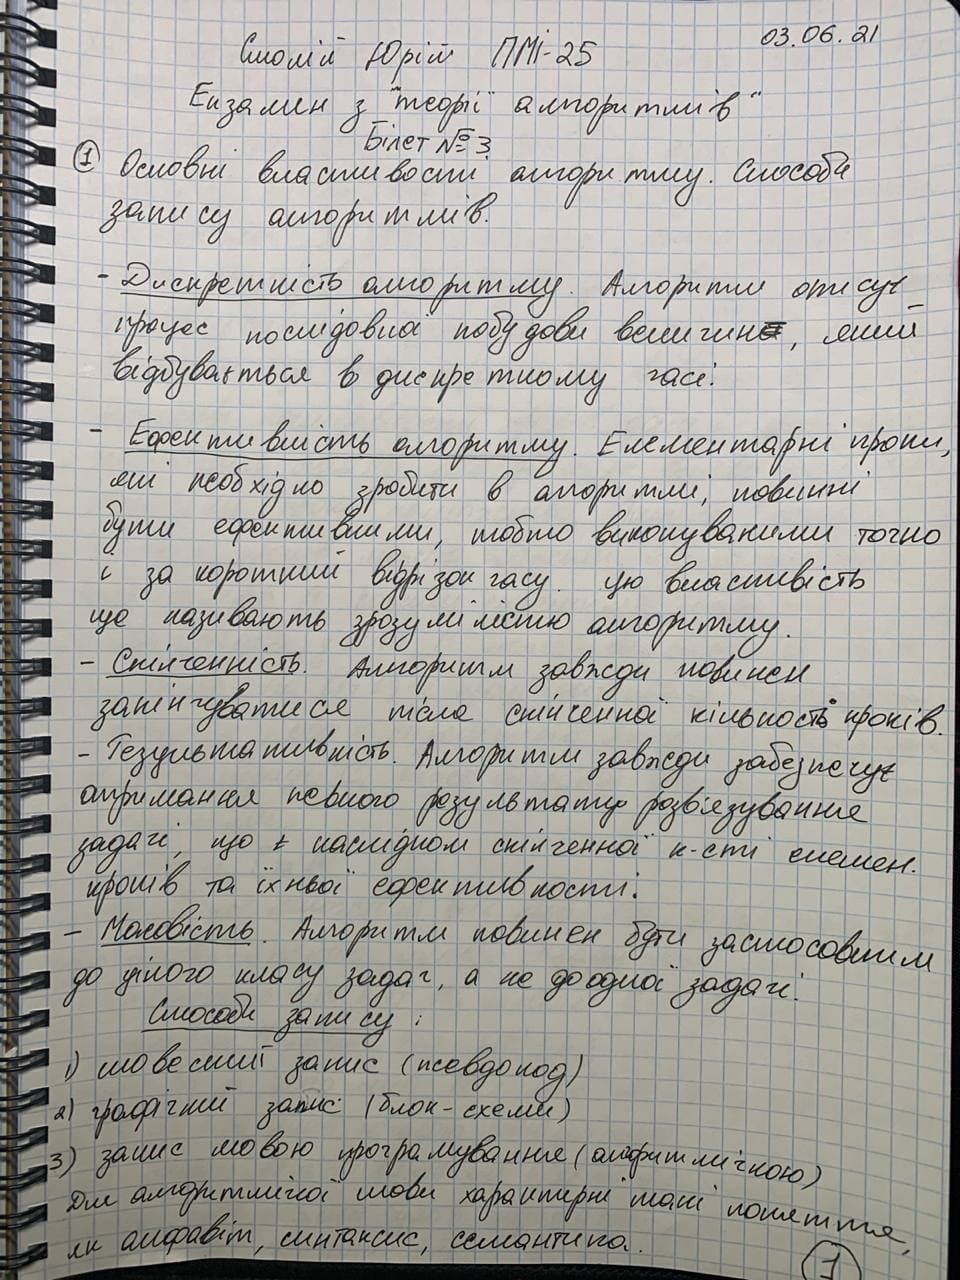 03.06.21
Смолій Юрій ПМі-25
Екзамен з "теорії алгоритмів"
Білет № 3
① Основні властивості алгоритму. Способи
запису алгоритмів.
- Дискретність алгоритму. Алгоритм описує
процес послідовної побудови величин, який
відбувається в дискретному часі.
- Ефективність алгоритму. Елементарні кроки,
які необхідно зробити в алгоритмі, повинні
бути ефективними, тобто виконуваними точно
і за короткий відрізок часу. Цю властивість
ще називають зрозумілістю алгоритму.
- Скінченність. Алгоритм завжди повинен
закінчуватися після скінченної кількость кроків.
- Результативність. Алгоритм завжди забезпечує
отримання певного результату розв'язування
задачі, що є наслідком скінченної к-сті елемен.
кроків та їхньої ефективності.
- Масовість. Алгоритм повинен бути застосовним
до цілого класу задач, а не до одної задачі.
Способи запису:
1) словесний запис (псевдокод)
2) графічний запис (блок-схеми)
3) запис мовою програмування (алгоритмічною)
Для алгоритмічної мови характерні такі поняття,
як алфавіт, синтаксис, семантика.
1